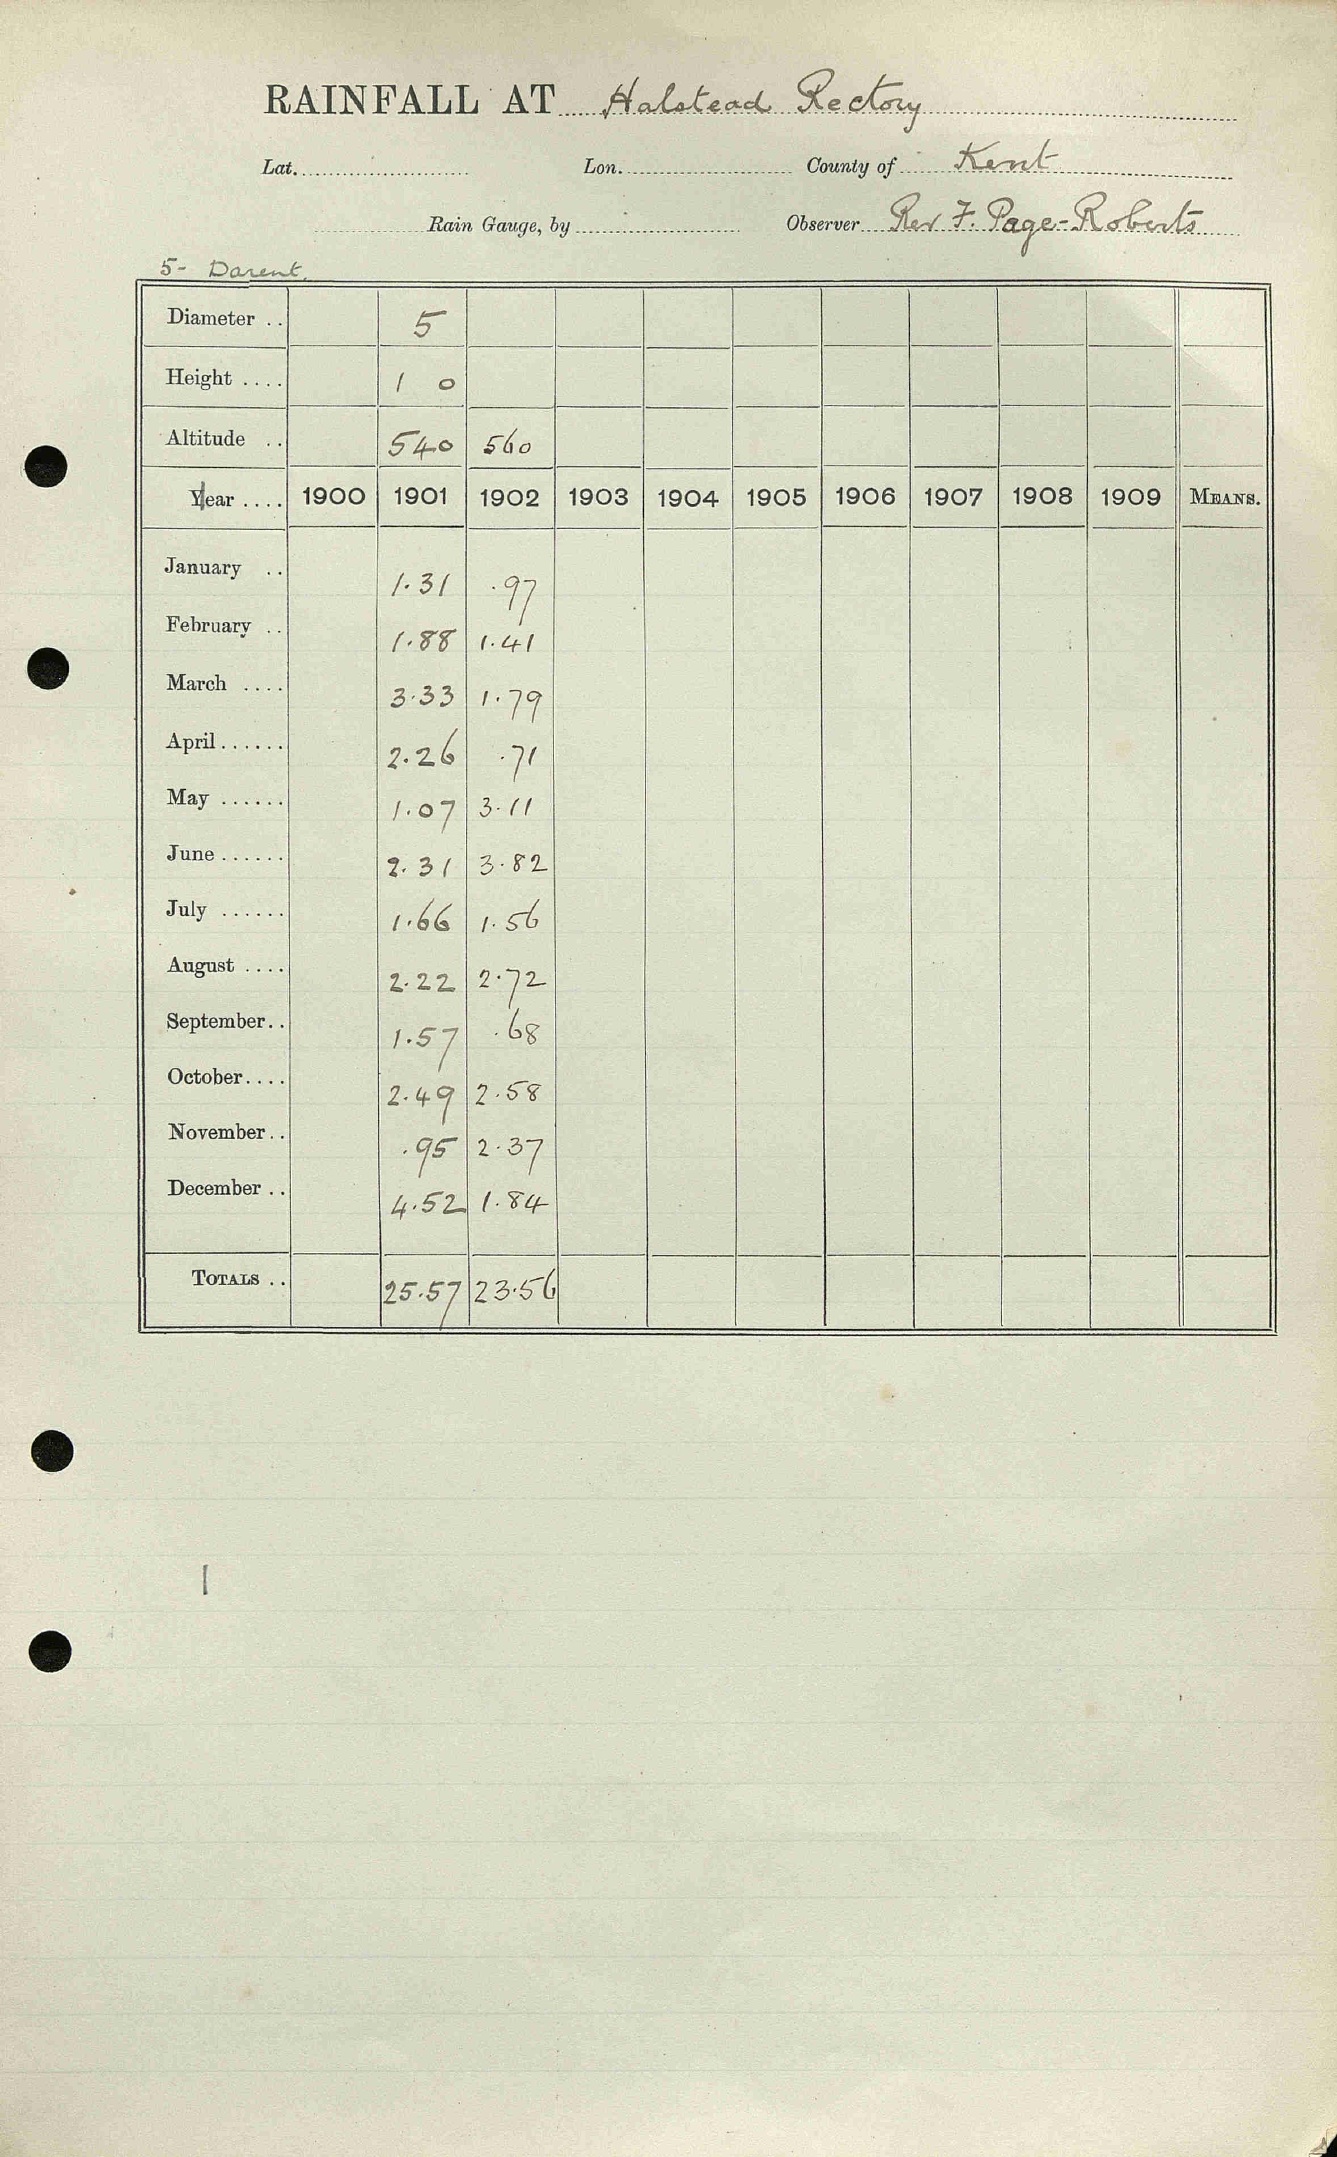 RAINFALL AT Halstead Rectory
Lat. Lon. County of Kent
Rain Gauge, by Observer Rev F. Page-Roberts
5- Darent.
Diameter .. 5
Height .... 1 0
Altitude .. 540 560
Year .... 1900 1901 1902 1903 1904 1905 1906 1907 1908 1909 MEANS.
January .. 1.31 .97
February .. 1.88 1.41
March .... 3.33 1.79
April ...... 2.26 .71
May ...... 1.07 3.11
June ...... 2.31 3.82
July ...... 1.66 1.56
August .... 2.22 2.72
September .. 1.57 .68
October .... 2.49 2.58
November .. .95 2.37
December .. 4.52 1.84
TOTALS .. 25.57 23.56